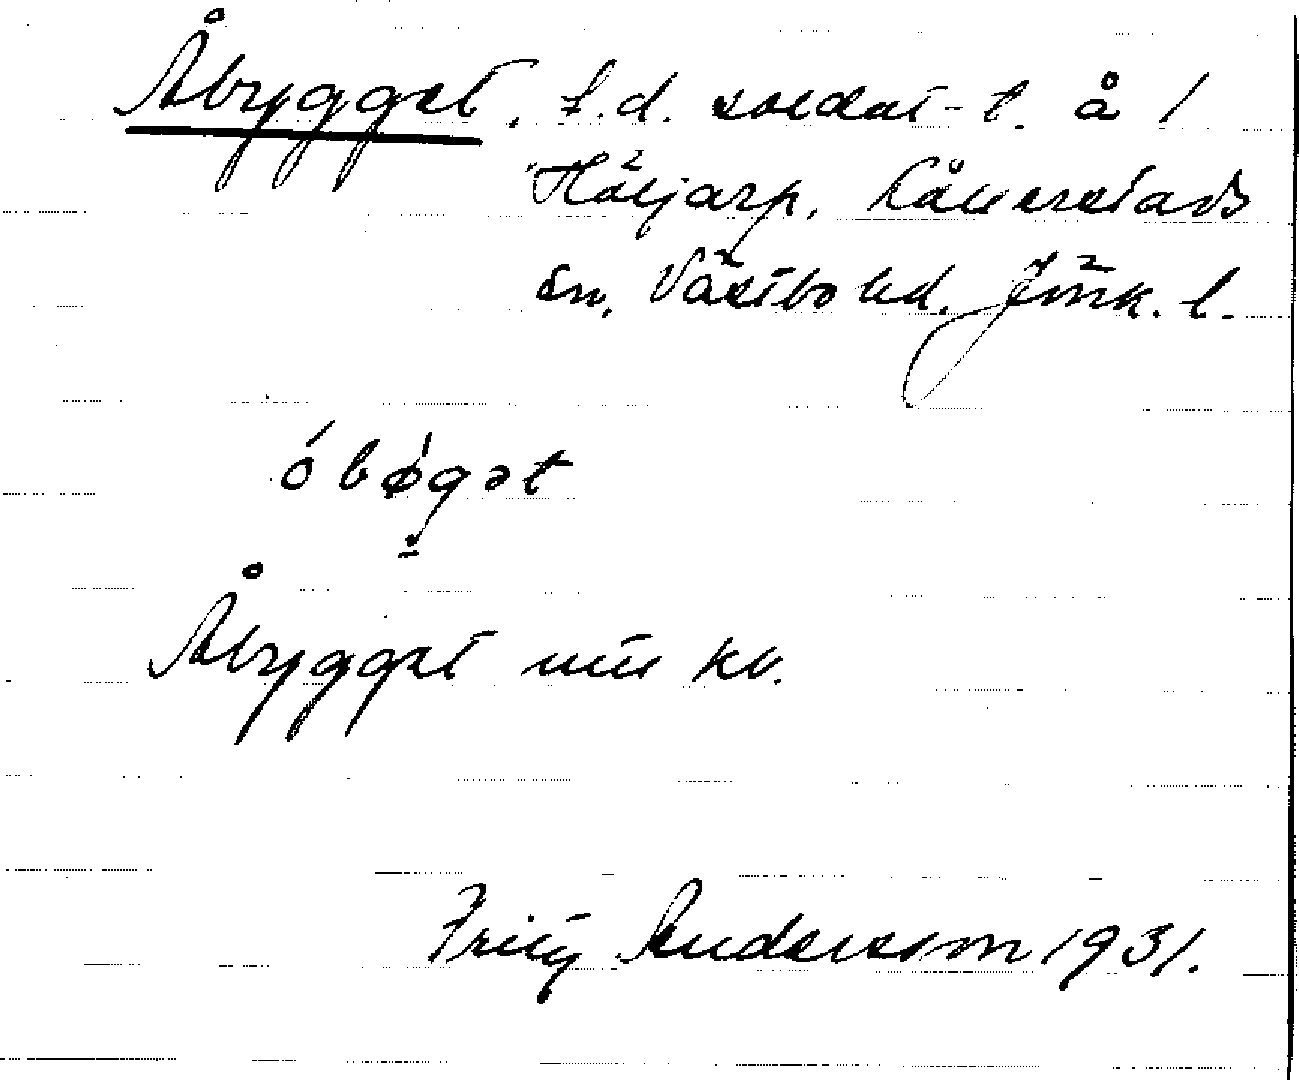 Åbygget, f.d. soldat-t. å 1
Häljarp, Kållerstads
sn, Västbo hd. Jönk. l.
óbǿgət
Åbygget
kv.
Fritz Andersson 1931.